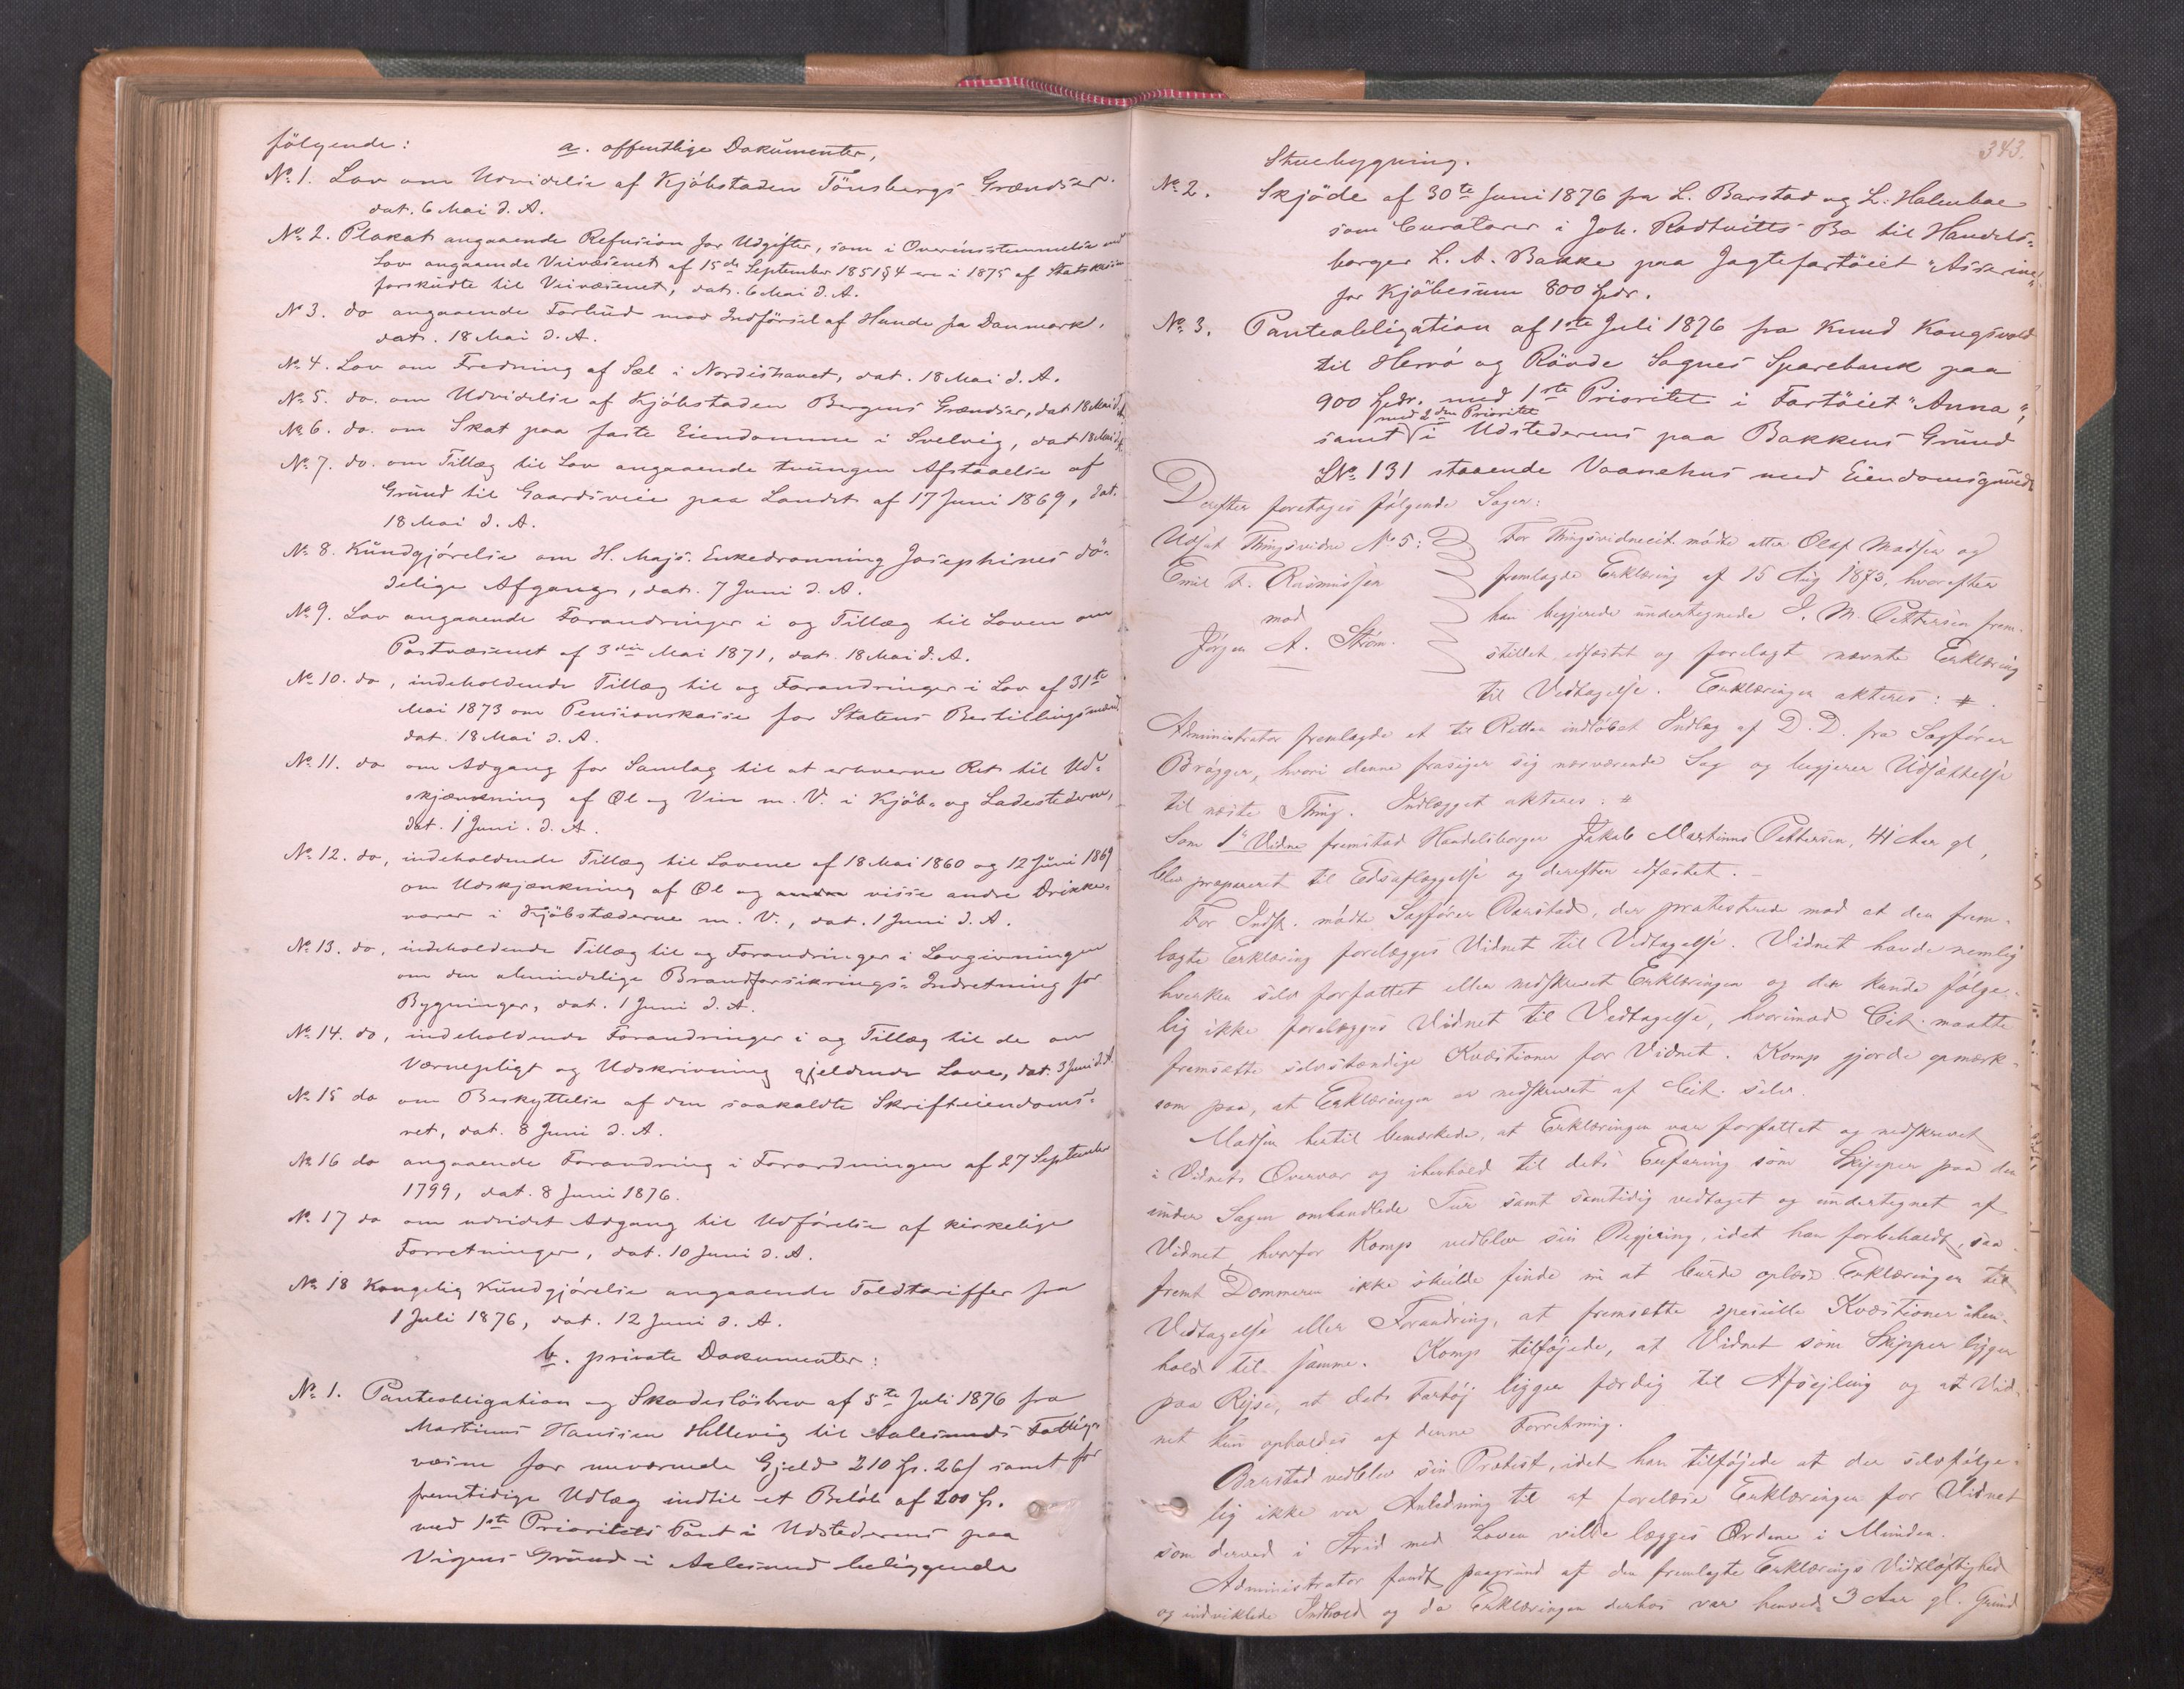 følgende: a. offentlige Dokumenter,
No. 1. Lov om Udvidelse af Kjøbstaden Tönsbergs Grændser.
dat. 6 Mai d. A.
No. 2. Plakat angaaende Refusion for Udgifter, som i Overensstemmelse med
Lov angaaende Veivæsenet af 15de September 1851 § 4 ere i 1875 af Statskassen
forskudte til Veivæsenet, dat. 6 Mai d. A.
No 3. do angaaende Forbud mod Indförsel af Hunde fra Danmark,
dat. 18 Mai d. A.
No. 4. Lov om Fredning af Sæl i Nordishavet, dat. 18 Mai d. A.
No. 5. do. om Udvidelse af Kjøbstaden Bergens Grændser, dat 18 Mai d. A.
No. 6. do. om Skat paa faste Eiendomme i Svelvig, dat 18 Mai d. A.
No. 7. do. om Tillæg til Lov angaaende tvungen Afstaaelse af
Grund til Gaardsveie paa Landet af 17 Juni 1869, dat.
18 Mai d. A.
No. 8. Kundgjørelse om H. Majs. Enkedronning Josephines dö-
delige Afgang, dat. 7 Juni d. A.
No. 9. Lov angaaende Forandringer i og Tillæg til Loven om
Postvæsenet af 3die Mai 1871, dat. 18 Mai d. A.
No. 10. do, indeholdende Tillæg til og Forandringer i Lov af 31te
Mai 1873 om Pensionskasse for Statens Bestillingsmænd
dat. 18 Mai d. A.
No. 11. do om Adgang for Samlag til at erhverve Ret til Ud-
skjænkning af Øl og Vin m. V. i Kjøb- og Ladestederne,
dat. 1 Juni. d. A.
No. 12. do, indeholdende Tillæg til Lovene af 18 Mai 1860 og 12 Juni 1869
om Udskjænkning af Øl og andre visse andre Drikke-
varer i Kjøbstæderne m. V., dat. 1 Juni d. A.
No. 13. do, indeholdende Tillæg til og Forandringer i Lovgivningen
om den almindelige Brandforsikrings-Indretning for
Bygninger, dat. 1 Juni d. A.
No. 14. do, indeholdende Forandringer i og Tillæg til de om
Værnepligt og Udskrivning gjeldende Love, dat. 3 Juni d. A.
No. 15 do om Beskyttelse af den saakaldte Skrifteiendoms-
ret, dat. 8 Juni d. A.
No 16 do angaaende Forandring i Forordningen af 27 September
1799, dat. 8 Juni 1876.
No. 17 do om udvidet Adgang til Udførelse af kirkelige
Forretninger, dat. 10 Juni d. A.
No. 18 Kongelig Kundgjørelse angaaende Toldtariffer fra
1 Juli 1876, dat. 12 Juni d. A.
b. private Dokumenter:
No. 1. Panteobligation og Skadeslösbrev af 5te Juli 1876 fra
Martinus Hanssen Hellevig til Aalesunds Fattig-
væsen for nuværende Gjeld 210 Sp. 26 s samt for
fremtidige Udlæg indtil et Beløb af 200 Sp.
med 1ste Prioritets Pant i Udstederens paa
Vigens Grund i Aalesund beliggende
343.
Stuebygning.
No. 2. Skjöde af 30te Juni 1876 fra L. Barstad og L. Holmboe
som Curatorer i Joh. Rodtvitts Bo til Handels-
borger L. A. Bakke paa Jagtefartöiet "Asserine"
for Kjöbesum 800 Spdr.
No. 3. Panteobligation af 1ste Juli 1876 fra Knud Kongsvold
til Herrö og Rövde Sognes Sparebank paa
900 Spdr. med 1ste Prioritet i Fartöiet "Anna",
med 2den Prioritet
samt i Udstederens paa Bakkens Grund
LNo. 131 staaende Vaanehus med Eiendomsgrund
Derefter foretoges følgende Sager:
Udsat Thingsvidne No. 5:
Emil F. Rasmussen
mod
Jörgen A. Strøm.
For Thingsvidneeit. mödte atter Olaf Madsen og
fremlagde Erklæring af 15 Aug 1873, hvorefter
han begjerede undertegnede J. M. Pettersen frem-
stillet edfæstet og forelagt nævnte Erklæring
til Vedtagelse. Erklæringen akteres: #.
Administrator fremlagde et til Retten indløbet Indlæg af D. D. fra Sagfører
Brøgger, hvori denne frasiger sig nærværende Sag og begjerer Udsættelse
til næste Thing. Indlægget akteres: #
Som 1ste Vidne fremstod Handelsborger Jakob Martinus Pettersen, 44 Aar gl,
blev præpareret til Edsaflæggelse og derefter edfæstet. –
For Indst. mødte Sagfører Barstad, der protesterede mod at den frem-
lagte Erklæring forelægges Vidnet til Vedtagelse. Vidnet havde nemlig
hverken selv forfattet eller nedskrevet Erklæringen og den kunde følge-
lig ikke forelægges Vidnet til Vedtagelse, hvorimod Cit. maatte
fremsætte selvstændige Kvæstioner for Vidnet. Komp gjorde opmærk-
som paa, at Erklæringen er nedskrevet af Cit. selv.
Madsen hertil bemærkede, at Erklæringen var forfattet og nedskrevet
i Vidnets Overvær og ihenhold til dets Erfaring som Skipper paa den
under Sagen omhandlede Tur samt samtidig vedtaget og undertegnet af
Vidnet, hvorfor Komp vedblev sin Begjæring, idet han forbeholdt, saa-
fremt Dommeren ikke skulde finde sig at burde oplæse Erklæringen til
Vedtagelse eller Forandring, at fremsætte specielle Kvæstioner ihen-
hold til samme. Komp tilføjede, at Vidnet som Skipper ligger
paa Rejse, at dets Fartøj ligger færdig til Afsejling og at Vid-
net kun opholdes af denne Forretning.
Barstad vedblev sin Protest, idet han tilføjede at der selvfølge-
lig ikke var Anledning til at forelæse Erklæringen for Vidnet
som derved i Strid med Loven vilde lægges Ordene i Munden.
Administrator fandt paagrund af den fremlagte Erklærings Vidtløftighed
og indviklede Indhold og da Erklæringen derhos var henved 3 Aar gl. Grund